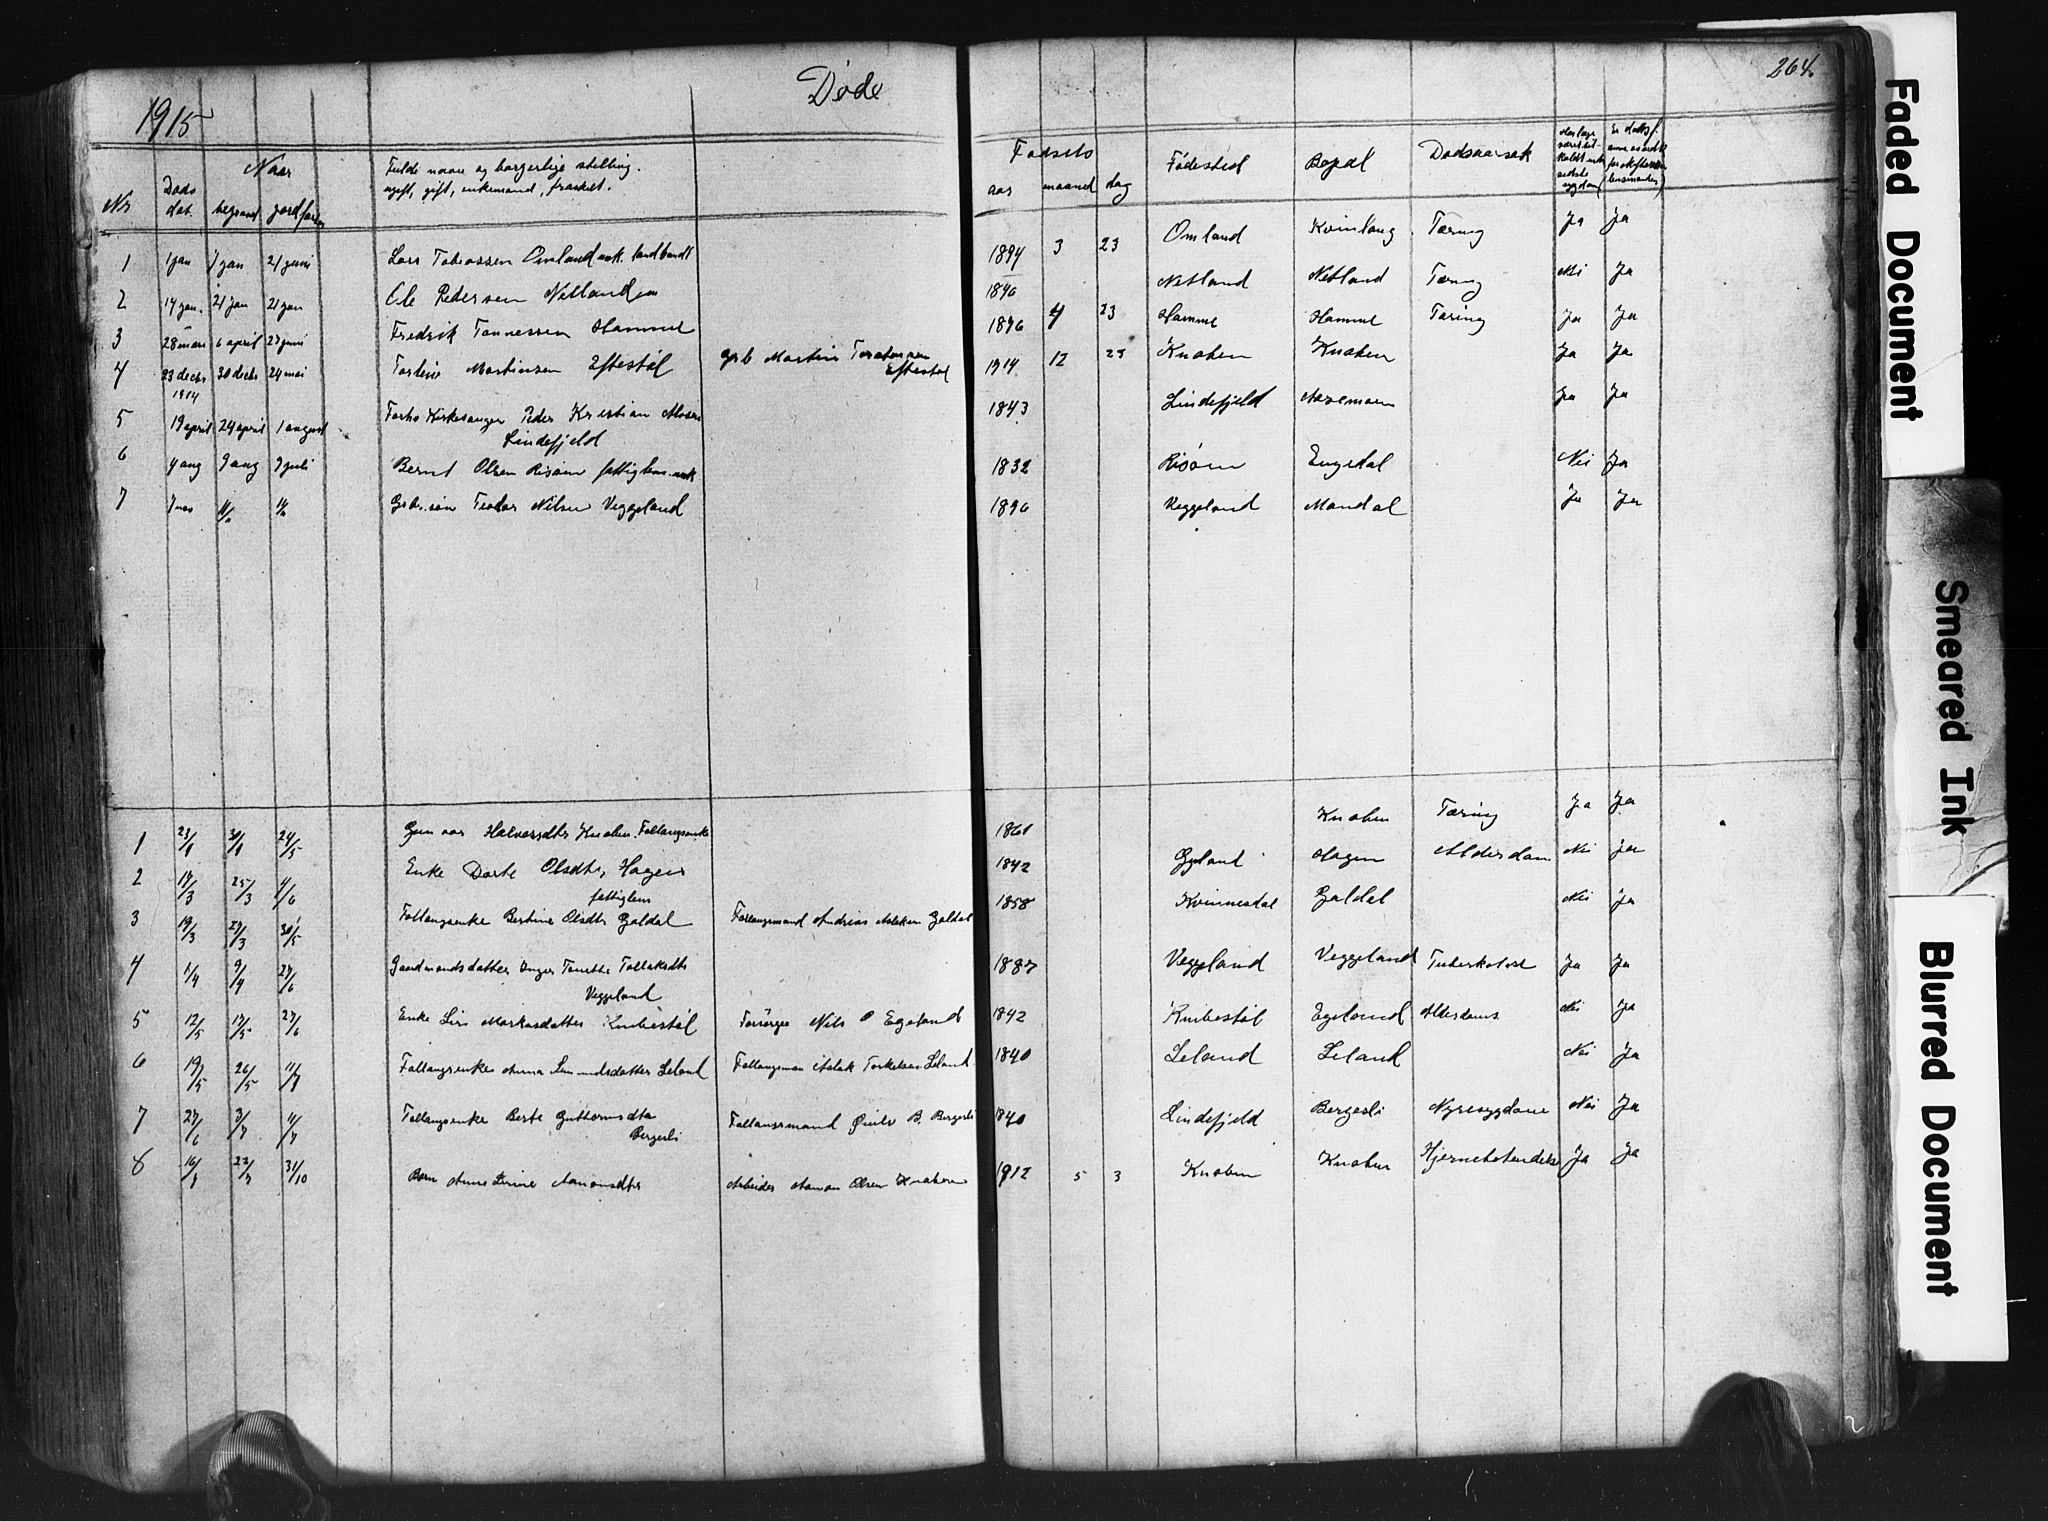 1915
Døde
264.
Nr Døds dat. Naar begravet jordfæstet
Fulde navn og borgerlige stilling.
ugift, gift, enkemand, fraskilt.
Fødsels
aar maaned dag
Fødested Bopæl Dødsaarsak
1 1 jan 7 jan 21 juni Lars Tobiassen Omland landbundt 1894 3 23 Omland Kvinlaug Tæring Ja Ja
2 14 jan. 21 jan 21 jan Ole Pedersen Netland 1896 Netland Netland Tæring Nei Ja
3 28 mars 6 april 27 juni Fredrik Tønnessen Hamme 1896 4 23 Hamme Hamme Tæring Ja Ja
4 23 decbr 30 decbr 24 mai Martinsen Eftestøl grb Martin Eftestøl 1914 12 23 Knaben Knaben Ja Ja
1914
5 19 april 24 april 1 august Forhv Kirkesanger Peder Kristian 1843 Lindefjeld Ja Ja
Lindefjeld
6 4 aug 9 aug 7 juli Bernt Olsen Risøen 1832 Risøen Engedal Nei Ja
7 7 nov 11/11 11/11 Grbr. søn Teodor Nilsen Veggeland 1896 Veggeland Mandal Ja Ja
1 23/1 30/1 24/5 Gunvor Halvorsdtr Knaben Follaugsenke 1861 Knaben Tæring Ja Ja
2 17/3 25/3 4/6 Enke Dorte Olsdtr, Hagen 1842 Gyland Hagen Alderdom Nei Ja
fattiglem
3 19/3 27/3 30/5 Follaugsenke Bertine Olsdtr Galdal Follaugsmand Andreas Galdal 1858 Kvinnesdal Galdal Nei Ja
4 1/4 9/4 27/6 Gaardmandsdatter Inger Tonette Tollaksdtr 1887 Veggeland Veggeland Tuberkulose Ja Ja
Veggeland
5 12/5 19/5 27/6 Enke Siri Markusdatter Knibestøl Forsørges Nils O Egeland 1842 Knibestøl Egeland Alderdoms Nei Ja
6 19/5 26/5 11/7 Follaugsenke Anna Leland Follaugsman Aslak Torkelsen Leland 1840 Leland Leland Nei Ja
7 27/6 3/7 11/7 Follaugsenke Berte Guttormsdtr Follaugsmand B. Bergesli 1840 Lindefjeld Bergesli Nyresygdom Nei Ja
Bergesli
8 16/7 23/7 31/10 Barn Anne Aanonsdtr Arbeider Aanon Olsen Knaben 1912 5 3 Knaben Knaben Hjernebetendelse Ja Ja
Faded Document
Smeared Ink
Blurred Document